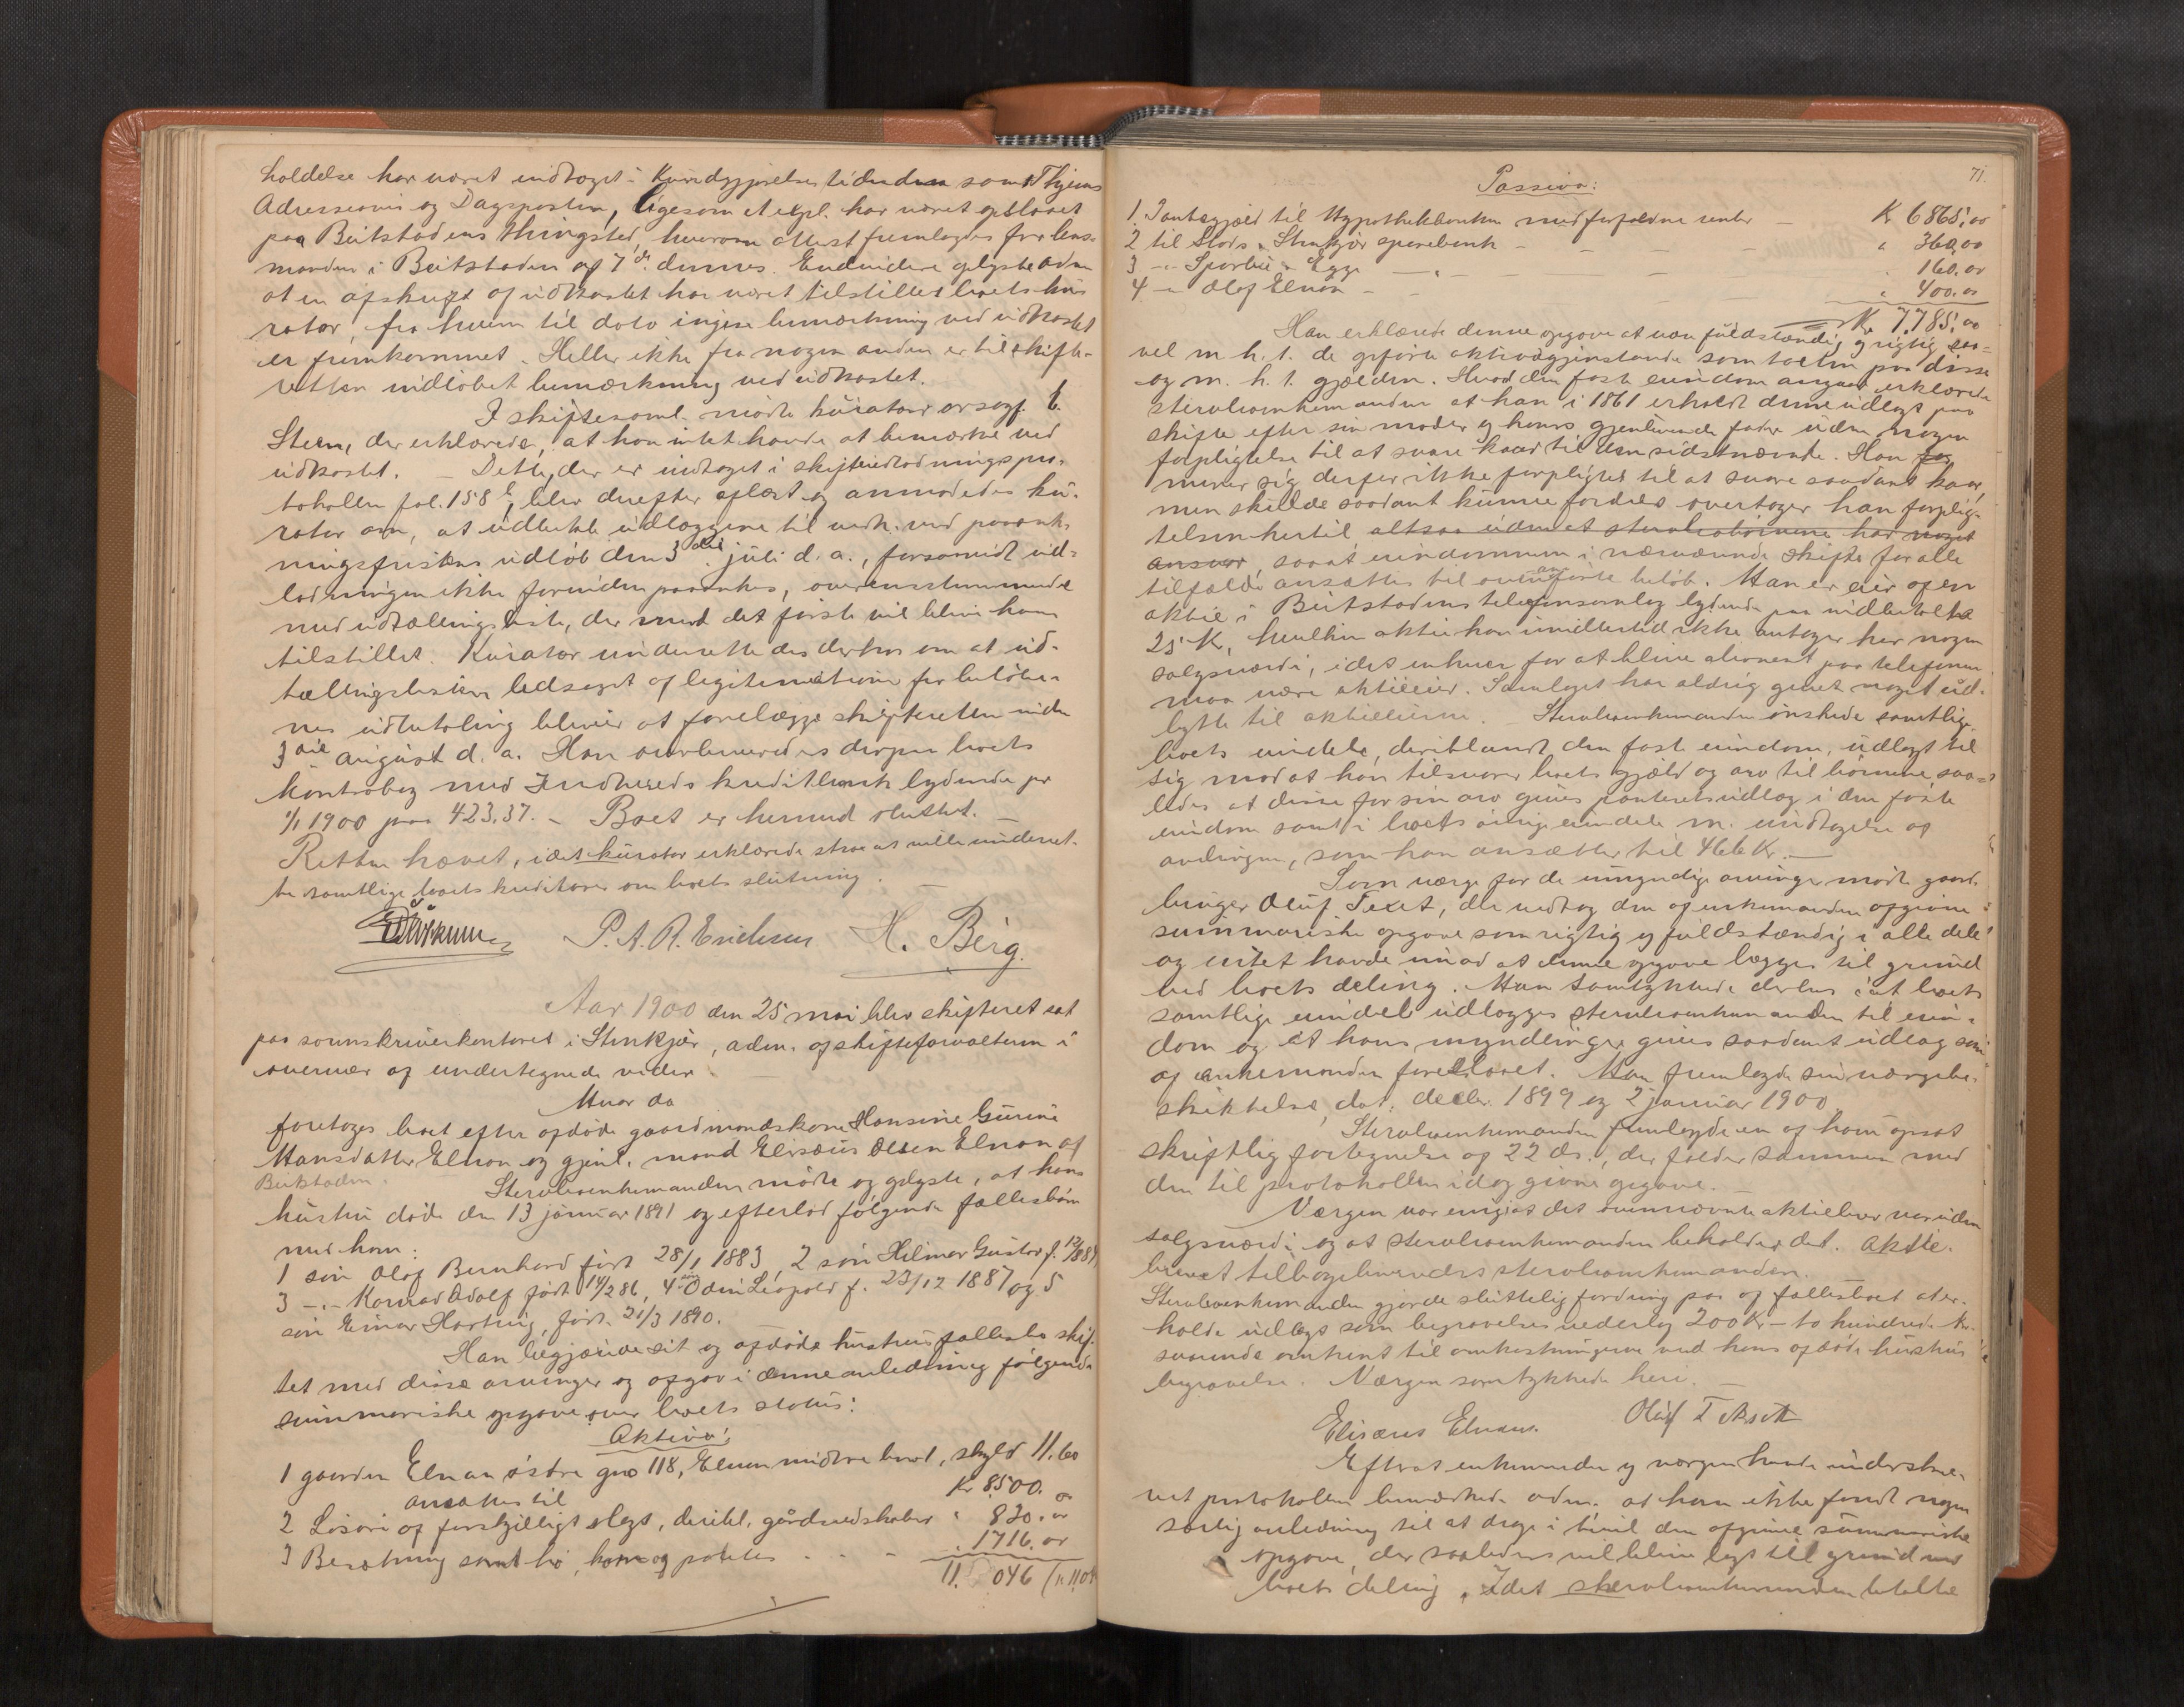 holdelse har været indtaget i Kundgjørelsestidenden samt Thjems
Adresseavis og Dagsposten, ligesom et expl. har været opslaaet
paa Beitstadens thingsted, hvorom attest fremlagdes fra lens-
manden i Beitstaden af 7 ds. dennes. Endvidere oplyste adm.
at en afskrift af udkastet har været tilstillet boets ku-
rator, fra hvem til dato ingen bemærkning ved udkastet
er fremkommet. Heller ikke fra nogen anden er til skifte-
retten indløbet bemærkning ved udkastet.
I skiftesaml. mødte kurator orsagf. E.
Steen, der erklærede, at han intet havde at bemærke ved
udkastet. – Dette, der er indtaget i skifteudlodningspro-
tokollen fol. 158 b, blev derefter oplæst og anmodedes ku-
rator om, at udbetale udlæggene til vedk. ved paaank-
ningsfristens udløb den 3die juli d. a., forsaavidt ud-
lodningen ikke forinden paaankes, overensstemmende
med udtællingsliste, der med det første vil blive ham
tilstillet. Kurator underrettedes derhos om at ud-
tællingslisten ledsaget af legitimationer for beløbe-
nes udbetaling bliver at forelægge skifteretten inden
3die august d. a. Han overleveredes derpaa boets
kontrabog med Indherreds kreditbank lydende pr
1/1 1900 paa 423.37. – Boet er hermed sluttet. –
Retten hævet, idet kurator erklærede strax at ville underret-
te samtlige boets kreditorer om boets slutning. –
P. A. R. Erichsen H. Berg.
Aar 1900 den 25 mai blev skifteret sat
paa sorenskriverkontoret i Stenkjær, adm. af skifteforvalteren i
overvær af undertegnede vidner.
Hvor da
foretoges boet efter afdøde gaardmandskone Hansine Gurine
Hansdatter Elnan og gjenl. mand Elisæus Olsen Elnan af
Beitstaden. Stervboenkemanden mødte og oplyste, at hans
hustru døde den 13 januar 1891 og efterlod følgende fællesbørn
med ham:
1 søn Olaf Bernhard født 28/1 1883, 2 søn Hilmar Gustav f.
3 –"– Konrad Adolf født 14/2 86, 4 søn Odin Leopold f. 23/12 1887 og 5
søn Einar Hartvig, født 21/3 1890.
Han begjærede sit og afdøde hustrus fællesbo skif-
tet med disse arvinger og opgav i denne anledning følgende
summariske opgave over boets status:
Aktiva:
1 gaarden Elnan østre gno 118, Elnan midtre bno 1, skyld 11.60
ansættes til Kr 8500.00
2 Løsøre af forskjelligt slags, deribl. gårdsredskaber " 830.00
3 Besætning samt hø, korn og poteter - - - " 1716.00
11.046
71.
Passiva:
1. Pantegjæld til Hypothekbanken med forfaldne renter – K 6865,00
2 til Stods & Stenkjær sparebank - - - - " 360,00
3 –"– Sparbu & Egge - - - - " 160.00
4 –"– Olaf Elnan - - " 400.00
Kr 7.785.00
Han erklærede denne opgave at være fuldstændig og rigtig saa-
vel m. h. t. de opførte aktivagjenstande som taxten paa disse
og m. h. t. gjælden. Hvad den faste eiendom angaar erklærede
stervboenkemanden at han i 1861 erholdt denne udlagt paa
skifte efter sin moder og hans gjenlevende fader uden nogen
forpligtelse til at svare kaar til den sidstnævnte. Han for
mener sig derfor ikke forpligtet til at svare saadant kaar,
men skulde saadant kunne fordres overtager han forplig-
telsen hertil, altsaa uden at stervboarvingerne har noget
ansvar, saa at eiendommen i nærværende skifte for alle
tilfælde ansættes til ovenanførte beløb. Han er eier af en
aktie i Beitstadens telefonsamlag lydende paa indbetalte
25 K, hvilken aktie han imidlertid ikke antager har nogen
salgsværdi, idet enhver for at blive abonnent paa telefonen
maa være aktieeier. Samlaget har aldrig givet noget ud-
bytte til aktieeierne. Stervboenkemanden ønskede samtlige
boets eiendele, deriblandt den faste eiendom, udlagt til
sig mod at han tilsvarer boets gjæld og arv til børnene saa-
ledes at disse for sin arv gives panteretsudlæg i den faste
eiendom samt i boets øvrige eiendele m. undtagelse af
avlingen, som han ansætter til 466 Kr. –
Som værge for de umyndige arvinger mødte gaard-
bruger Oluf Texet, der vedtog den af enkemanden opgivne
summariske opgave som rigtig og fuldstændig i alle dele
og intet havde imod at denne opgave lægges til grund
ved boets deling. Han samtykkede derhos i at boets
samtlige eiendele udlægges stervboenkemanden til eien-
dom og at hans myndlinger gives saadant udlæg som
af enkemanden foreslaaet. Han fremlagde sin værgebe-
skikkelse, dat. decbr. 1899 og 2 januar 1900
Stervboenkemanden fremlagde en af ham opsat
skriftlig fortegnelse af 22 ds., der falder sammen med
den til protokollen idag givne opgave. –
Værgen var enig i at det ovennævnte aktiebrev var uden
salgsværdi og at stervboenkemanden beholder det. Aktie-
brevet tilbageleveredes stervboenkemanden.
Stervboenkemanden gjorde sluttelig fordring paa af fællesboet at er-
holde udlagt som begravelsesvederlag 200 Kr – to hundrede kr.
svarende omtrent til omkostningerne ved hans afdøde hustrus
begravelse. Værgen samtykkede heri. –
Elisæus Elnan. Oluf Teksett
Efterat enkemanden og værgen havde underskre-
vet protokollen bemærkede adm. at han ikke fandt nogen
særlig anledning til at drage i tvivl den afgivne summariske
opgave, der saaledes vil blive lagt til grund ved
boets deling. Idet stervboenkemanden betalte